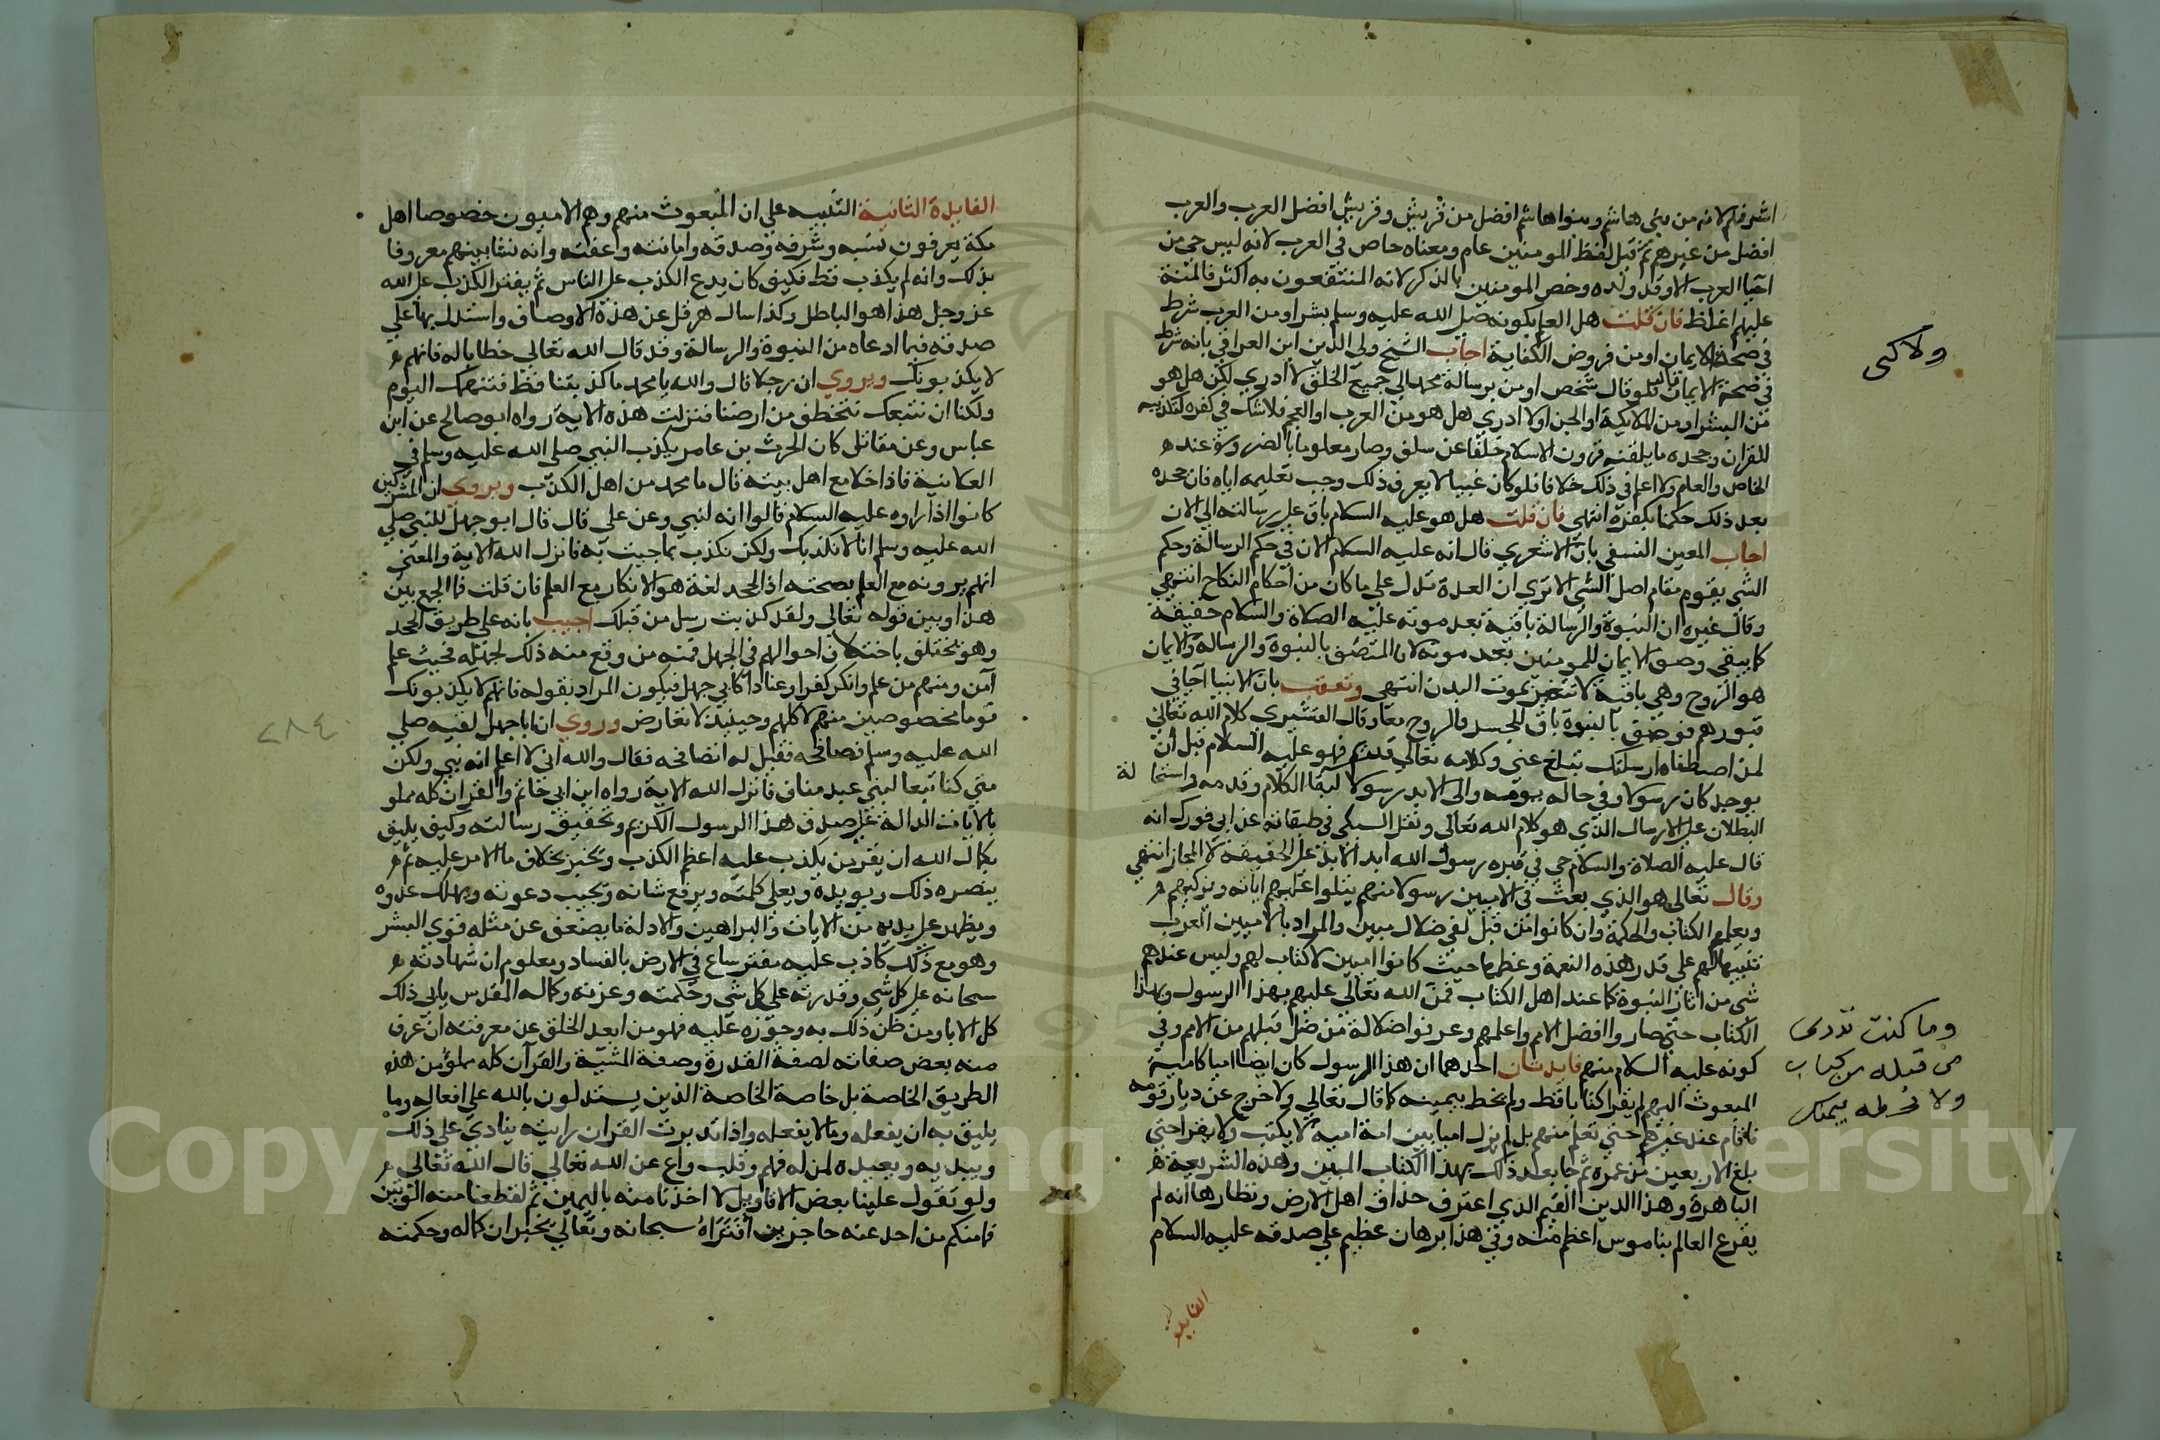 اشرفكم لانه من بني هاشم وبنوا هاشم افضل من قريش وقريش افضل العرب والعرب
افضل من غيرهم ثم قيل لفظ المومنين عام ومعناه خاص في العرب لانه ليس حي من
احيا العرب الا وقد ولده وخص المومنين بالذكر لانه المنتفعون به اكثر فالمنة
عليهم اعظم فان قلت هل العلم بكونه صلى الله عليه وسلم بشرا ومن العرب شرط
في صحة الايمان او من فروض الكفاية اجاب الشيخ ولي الدين ابن العراقي بانه شرط
في صحة الايمان قال فلو قال شخص اومن برسالة محمد الي جميع الخلق لا ادري لكن هل هو
من البشر او من الملايكة او الجن او لا ادري هل هو من العرب او العجم فلا شك في كفره لتكذيبه
للقران وجحده ما يلقنه قرون الاسلام خلفا عن سلف وصار معلوما بالضرورة عند
الخاص والعام ولا اعلم في ذلك خلافا فلو كان غبيا لا يعرف ذلك وجب تعليمه اياه فان جحده
بعد ذلك حكمنا بكفره انتهي فان قلت هل هو عليه السلام باق على رسالته الي الان
اجاب المعين النسفي بان الاشعري قال انه عليه السلام الان في حكم الرسالة وحكم
الشي يقوم مقام اصل الشي الا تري ان العدة تدل علي ما كان من احكام النكاح انتهي
وقال غيره ان النبوة والرسالة باقية بعد موته عليه الصلاة والسلام حقيقة
كما يبقي وصف الايمان للمومنين بعد موته لان المتصف بالنبوة والرسالة والايمان
هو الروح وهي باقية لا تتغير بموت البدن انتهي وتعقب بان الانبيا احيا في
قبورهم فوصف النبوة باق للجسد والروح معا وقال القشيري كلام الله تعالي
لمن اصطفاه ارسلتك تبلغ عني وكلامه تعالي قديم فهو عليه السلام قبل ان
يوجد كان رسولا وفي حاله يومه والى الابد رسولا لبقا الكلام وقدمه واستحالة
البطلان على الارسال الذي هو كلام الله تعالي ونقل السبكي في طبقاته عن ابي فورك انه
قال عليه الصلاة والسلام حي في قبره رسول الله ابد الاباد على الحقيقة لا المجاز انتهي
وقال تعالي هو الذي بعث في الاميين رسولا منهم يتلوا عليهم اياته ويزكيهم
ويعلمهم الكتاب والحكمة وان كانوا من قبل لفي ضلال مبين والمراد بالاميين العرب
تنبيها لهم علي قدر هذه النعمة وعظمها حيث كانوا اميين لا كتاب لهم وليس عندهم
شي من اثار النبوة كما عند اهل الكتاب فمن الله تعالي عليهم بهذا الرسول وبهذا
الكتاب حتي صاروا افضل الامم واعلمهم وعرفوا ضلالة من ضل قبلهم من الامم وفي
كونه عليه السلام منهم فايدتان احدهما ان هذا الرسول كان ايضا اميا كامية
المبعوث اليهم لم يقرا كتابا قط ولم يخطه بيمينه كما قال تعالي ولا خرج عن ديار قومه
فاقام عند غيرهم حتي تعلم منهم بل لم يزل اميا بين امة امية لا يكتب ولا يقرا حتي
بلغ الاربعين من عمره ثم جا بعد ذلك بهذا الكتاب المبين وهذه الشريعة
الباهرة وهذا الدين القيم الذي اعترف حذاق اهل الارض ونظارها انه لم
يقرع العالم بناموس اعظم منه وفي هذا برهان عظيم علي صدقه عليه السلام
الفايده
ولا كسى
وما كنت تدرى
من قبله من كتاب
ولا تخطه بيمينك
الفايدة الثانية التنبيه علي ان المبعوث منهم وهم الاميون خصوصا اهل
مكة يعرفون نسبه وشرفه وصدقه وامانته وعفته وانه نشا بينهم معروفا
بذلك وانه لم يكذب قط فكيف كان يدع الكذب على الناس ثم يفتر الكذب على الله
عز وجل هذا هو الباطل وكذا سال هرقل عن هذه الاوصاف واستدل بها علي
صدقه فيما ادعاه من النبوة والرسالة وقد قال الله تعالي خطابا له فانهم
لا يكذبونك ويروي ان رجلا قال والله يا محمد ما كذبتنا قط فنتهمك اليوم
ولكنا ان نتبعك نتخطف من ارضنا فنزلت هذه الاية رواه ابو صالح عن ابن
عباس وعن مقاتل كان الحرث بن عامر يكذب النبي صلى الله عليه وسلم في
العلانية فاذا خلا مع اهل بيته قال ما محمد من اهل الكذب ويروي ان المشركين
كانوا اذا راوه عليه السلام قالوا انه لنبي وعن علي قال قال ابو جهل للنبي صلي
الله عليه وسلم انا لا نكذبك ولكن نكذب بما جيت به فانزل الله الاية والمعني
انهم يرونه مع العلم بصحته اذ الجحد لغة هو الانكار مع العلم فان قلت فما الجمع بين
هذا وبين قوله تعالي ولقد كذبت رسل من قبلك اجيب بانه علي طريق الجحد
وهو يختلف باختلاف احوالهم في الجهل فمنه من وقع منه ذلك لجهله فحيث علم
آمن ومنهم من علم وانكر كفرا وعنادا كابي جهل فيكون المراد بقوله فانهم لا يكذبونك
قوما مخصوصين منهم لا كلهم وحينيذ لا تعارض وروي ان ابا جهل لقيه صلي
الله عليه وسلم فصافحه فقيل له اتصافحه فقال والله اني لا اعلم انه نبي ولكن
متي كنا تبعا لبني عبد مناف فانزل الله الاية رواه ابن ابي حاتم والقران كله مملو
بالايات الدالة على صدق هذا الرسول الكريم وتحقيق رسالته وكيف يليق
بكمال الله ان يقر من يكذب عليه اعظم الكذب ويخبر بخلاف ما الامر عليه ثم
ينصره ذلك ويويده ويعلي كلمته ويرفع شانه ويجيب دعوته ويهلك عدوه
ويظهر على يديه من الايات والبراهين والادلة ما يضعف عن مثله قوي البشر
وهو مع ذلك كاذب عليه مفتر ساع في الارض بالفساد ومعلوم ان شهادته
سبحانه على كل شي وقدرته علي كل شي وحكمته وعزته وكماله المقدس يابي ذلك
كل الابا ومن ظن ذلك به وجوزه عليه فهو من ابعد الخلق عن معرفته ان عرف
منه بعض صفاته لصفة القدرة وصفة المشية والقرآن كله مملو من هذه
الطريق الخاصة بل خاصة الخاصة الذين يستدلون بالله علي افعاله وما
يليق به ان يفعله وما لا يفعله واذا تدبرت القران رايته ينادي علي ذلك
ويبديه ويعيده لمن له فهم وقلب واع عن الله تعالي قال الله تعالي
ولو تقول علينا بعض الاقاويل لا اخذنا منه باليمين ثم لقطعنا منه الوتين
فما منكم من احد عنه حاجزين افتراه سبحانه وتعالي يخبر ان كماله وحكمته